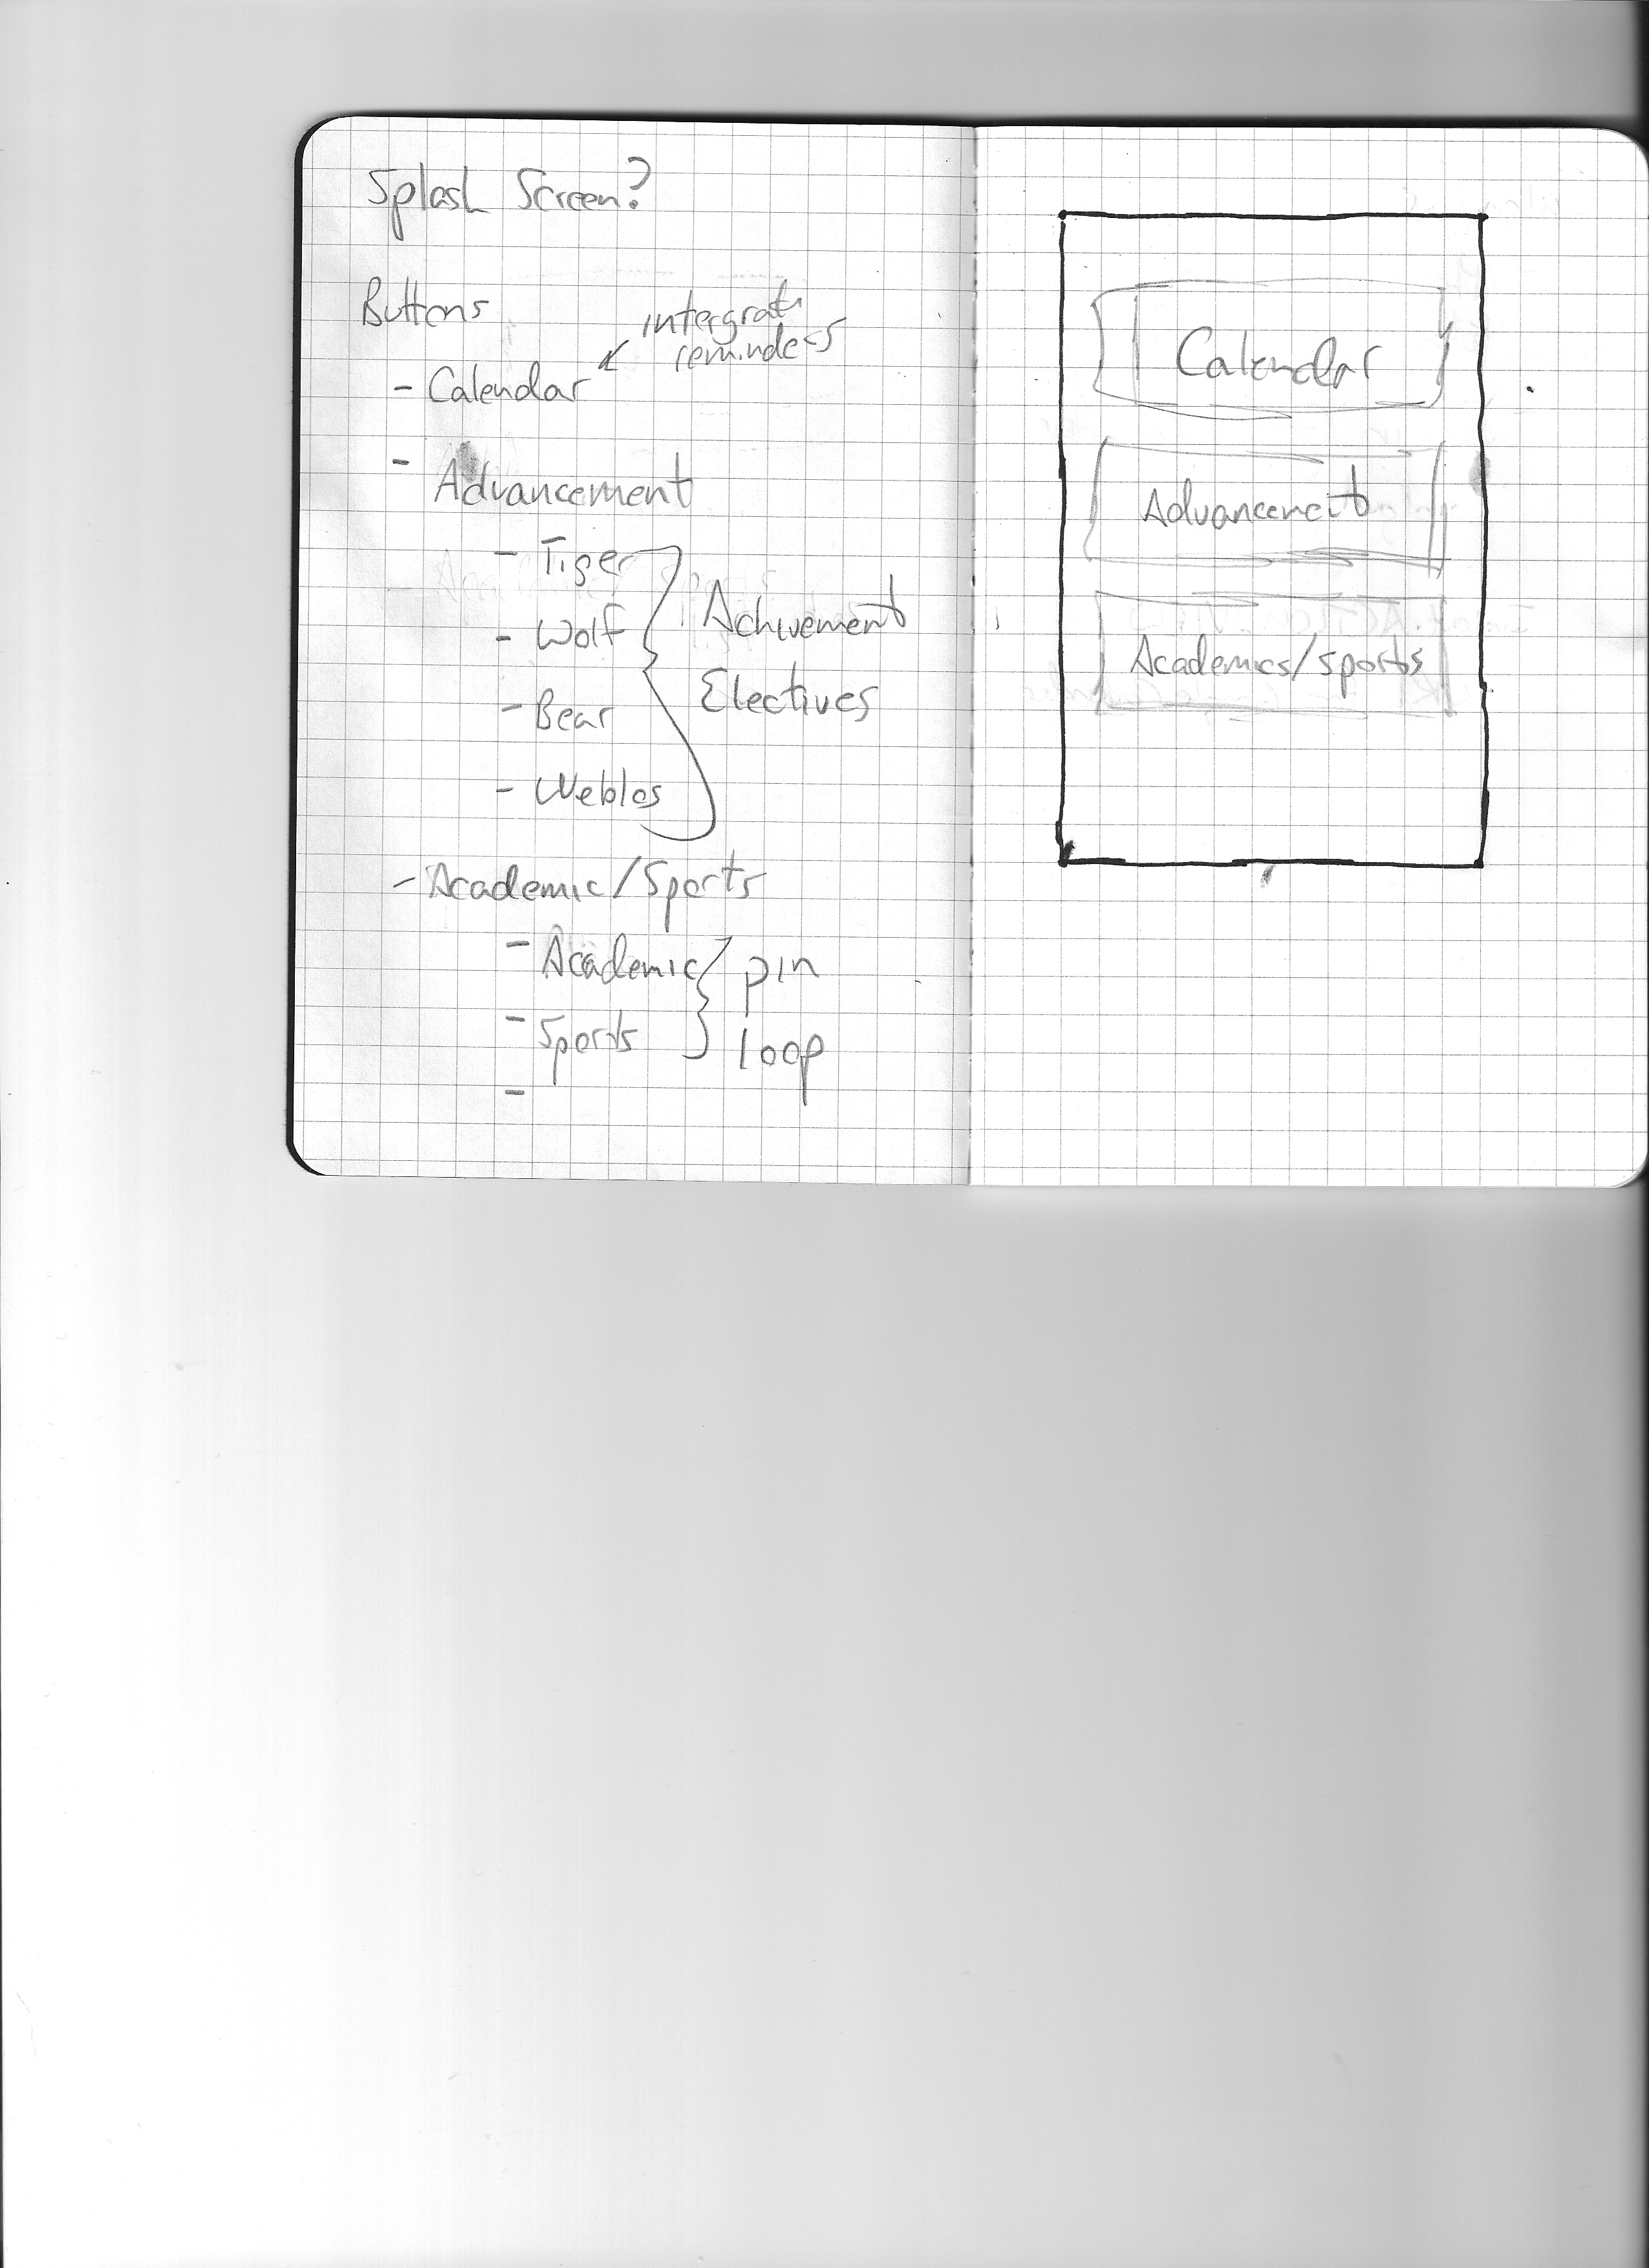 Splash Screen?
Buttons
intergrate
reminders
- Calendar
- Advancement
- Tiger
- Wolf
- Bear
- Weblos
Achivement
Electives
- Academic/Sports
- Academic
- Sports
-
pin
loop
Calendar
Advancement
Academics/sports